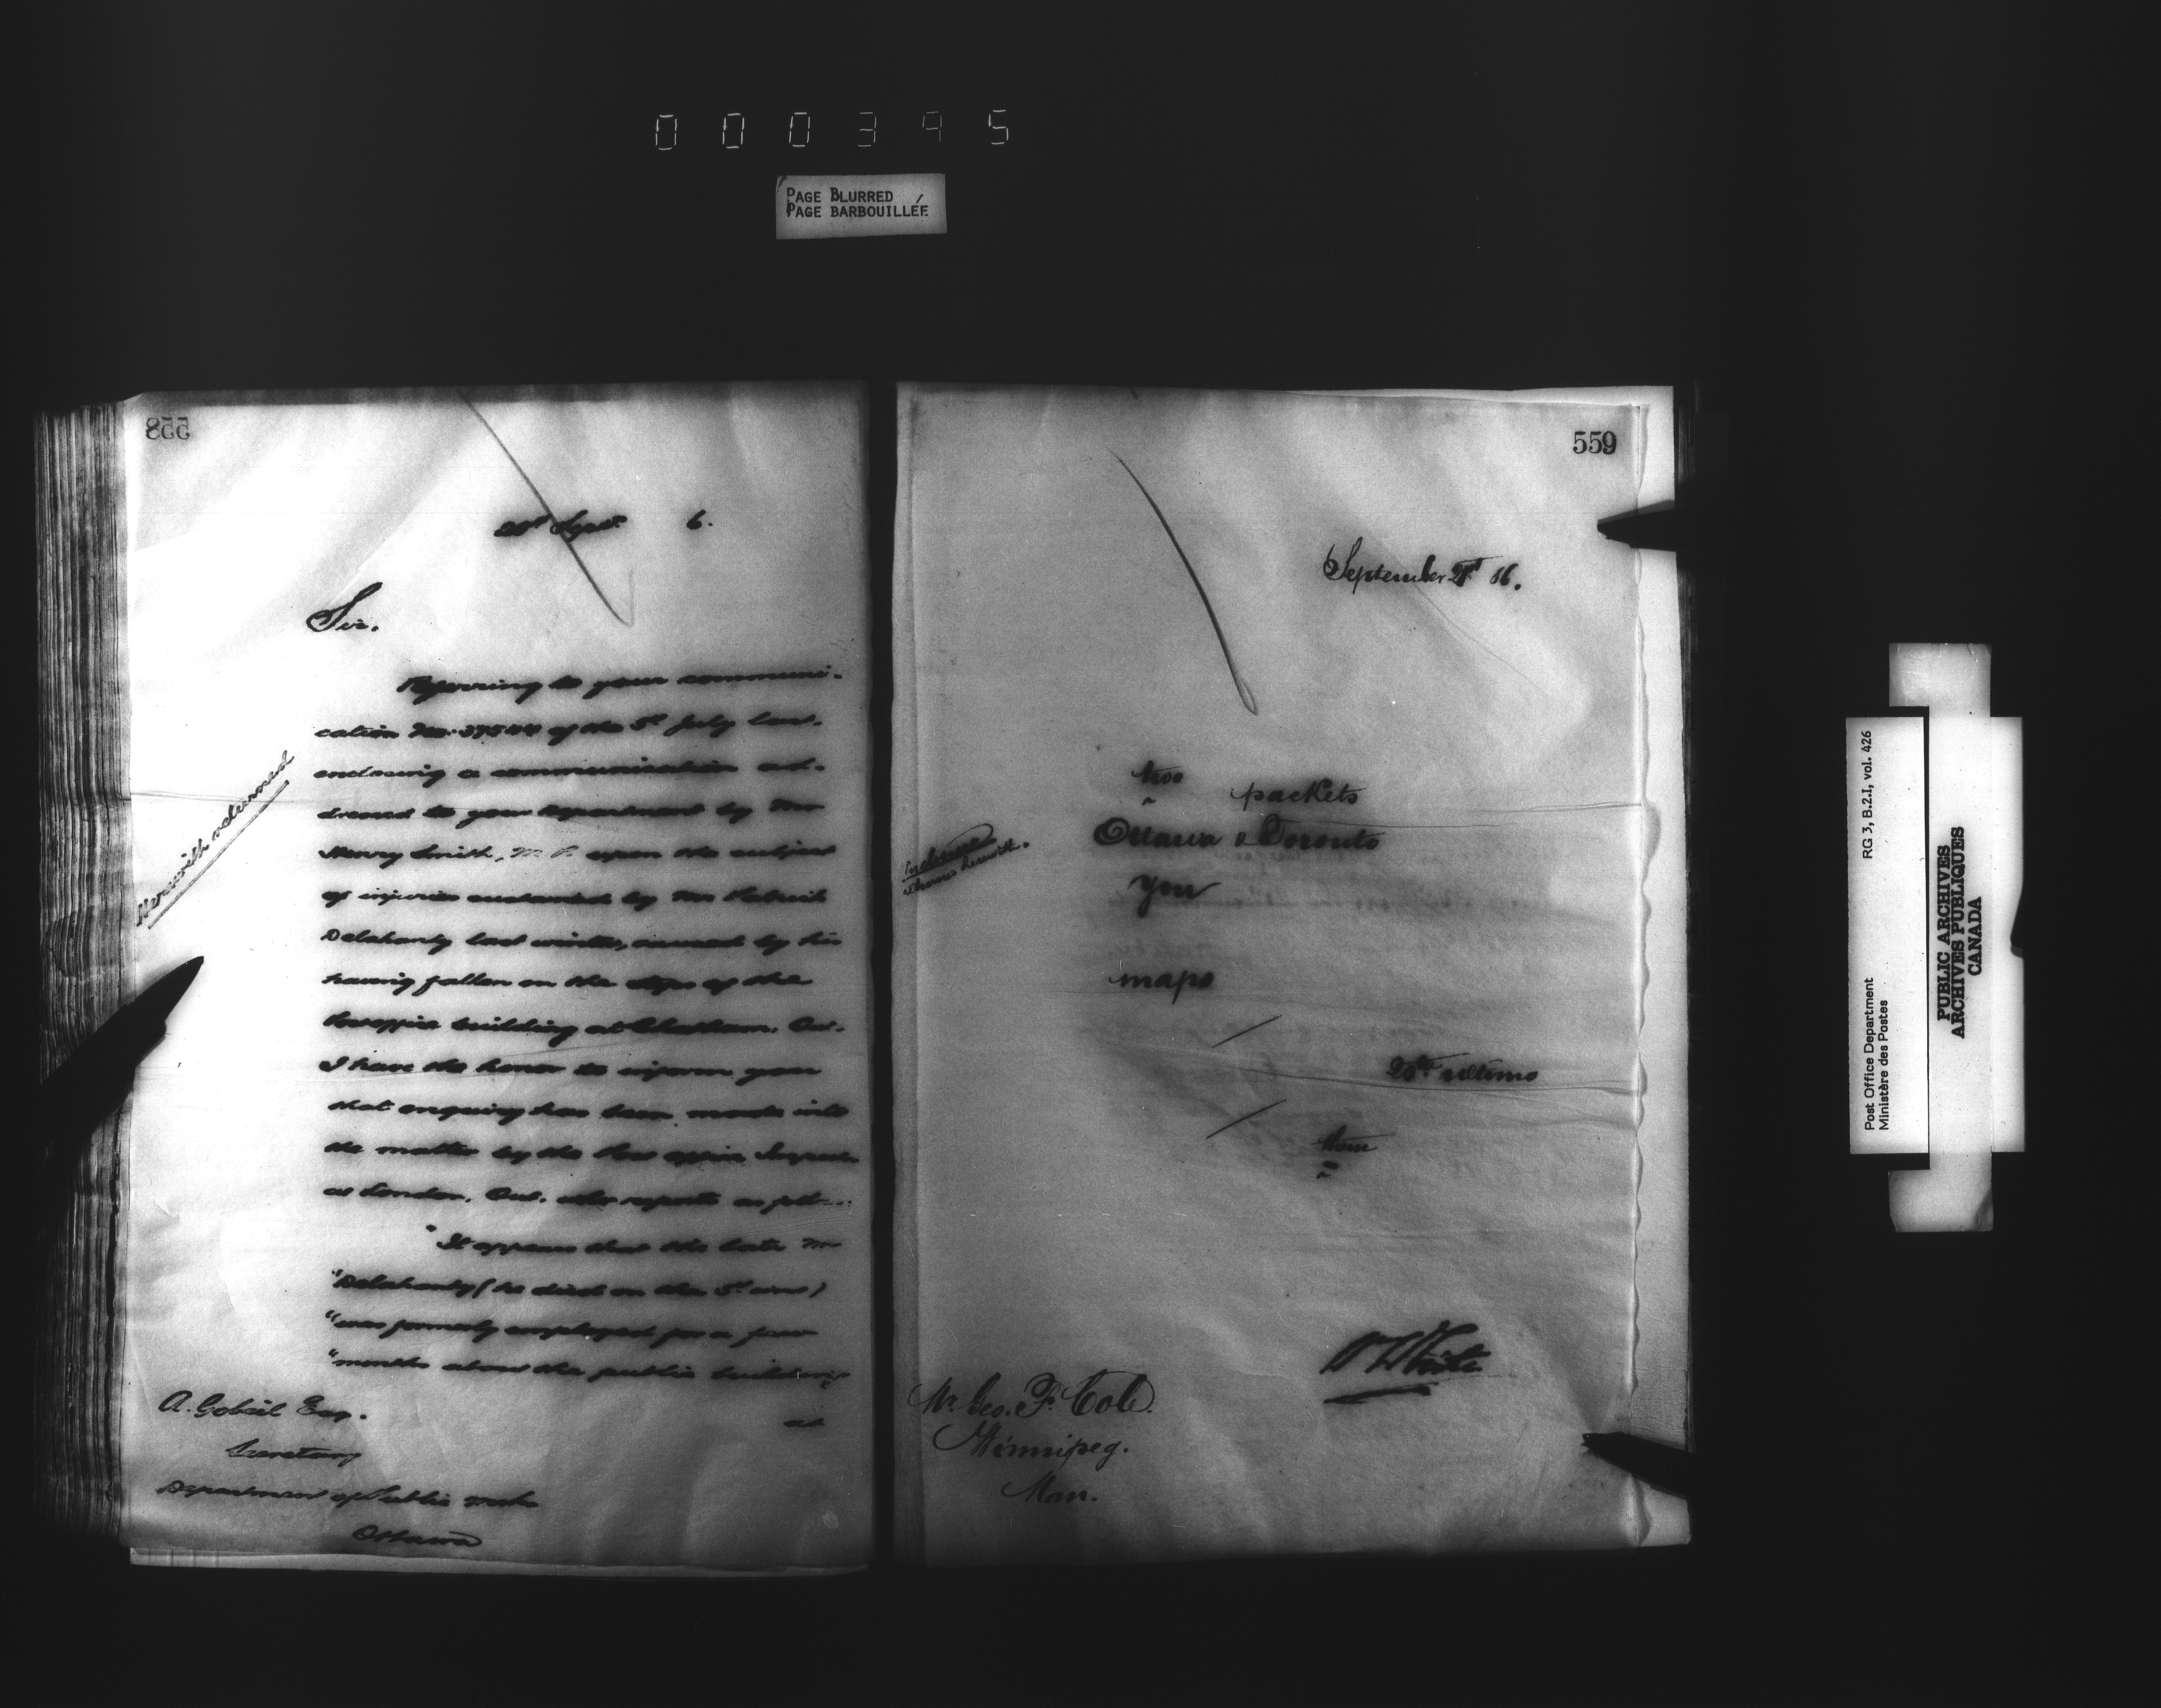 000395
PAGE BLURRED
PAGE BARBOUILLÉE
558
Sept. 6.
Sir.
Referring to your communi-
cation No. of the July last.
enclosing a communication ad-
dressed to your department by Mr
Henry Smith, M.P. upon the subject
of injuries sustained by Mr Patrick
Delahanty last winter, caused by his
having fallen on the steps of the
Post office building at Chatham, Ont.
I have the honor to inform you
that enquiry has been made into
the matter by the Post office Inspector
at London, Ont. who reports as follows:
"It appears that the late Mr
"Delahanty (he died on the inst)
"was formerly employed for a few
"months about the public building
at
Herewith returned
A. Gobeil Esq.
Secretary
Department of Public Works
Ottawa
559
September 21st 86.
two
packets
Ottawa & Toronto
you
maps
ultimo
them
herewith.
W White
Mr. Geo. F. Cole.
Winnipeg.
Man.
Post Office Department
Ministère des Postes
RG 3, B.2.I, vol. 426
PUBLIC ARCHIVES
ARCHIVES PUBLIQUES
CANADA